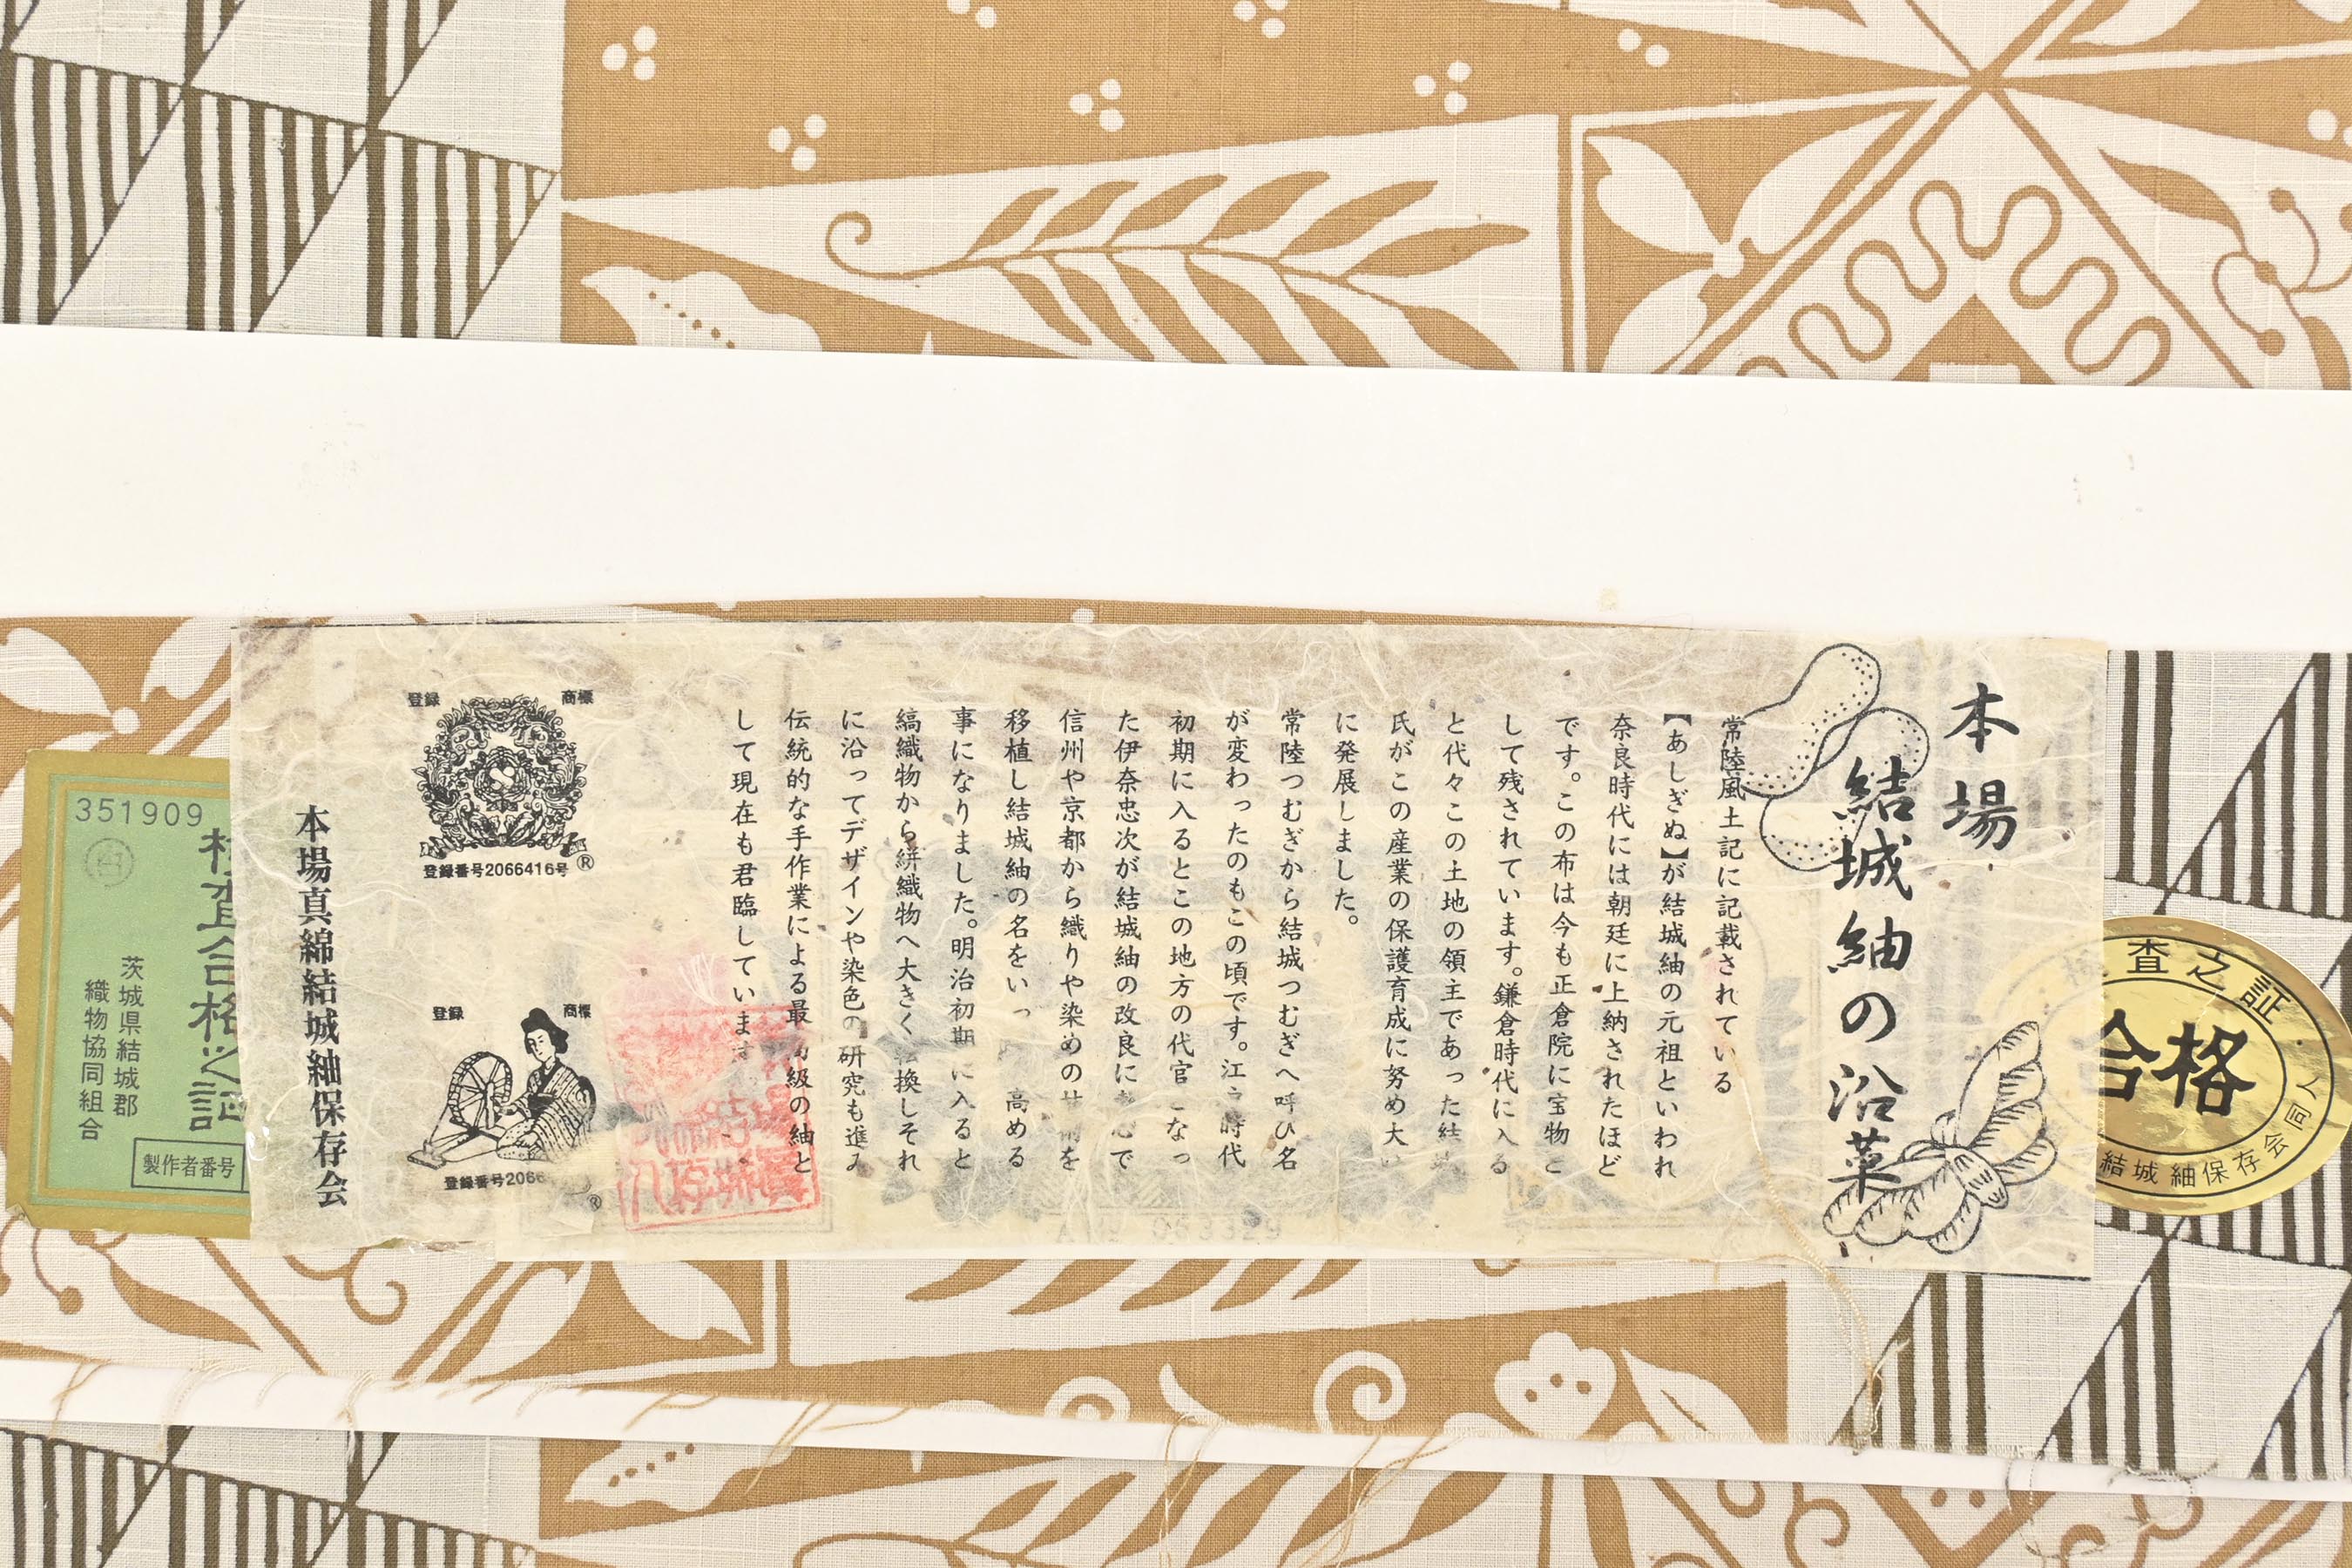 本場
結城紬の沿革
常陸風土記に記載されている
【あしぎぬ】が結城紬の元祖といわれ
奈良時代には朝廷に上納されたほど
です。この布は今も正倉院に宝物と
して残されています。鎌倉時代に入る
と代々この土地の領主であった結城
氏がこの産業の保護育成に努め大い
に発展しました。
常陸つむぎから結城つむぎへ呼び名
が変わったのもこの頃です。江戸時代
初期に入るとこの地方の代官となっ
た伊奈忠次が結城紬の改良に熱心で
信州や京都から織りや染めの技術を
移植し結城紬の名をいっ 高める
事になりました。明治初期 に入ると
縞織物から絣織物へ大きく転換しそれ
に沿ってデザインや染色の研究も進み
伝統的な手作業による最高級の紬と
して現在も君臨しています。
登録 商標
登録番号2066416号 ®
登録 商標
登録番号2066 ®
本場真綿結城紬保存会
351909
検査合格之証
茨城県結城郡
織物協同組合
製作者番号
査之証
合格
結城紬保存会同人